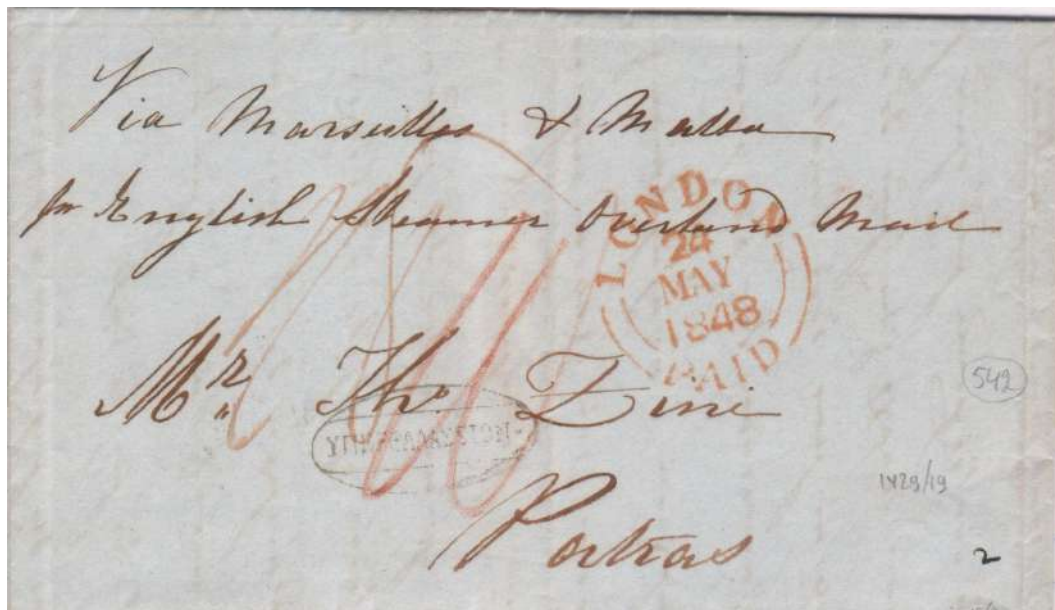 Via Marseilles & Malta
pr English Steamer Overland Mail
LONDON
24
MAY
1848
PAID
Mr. Tho. Zini
Patras
542
1429/19
2